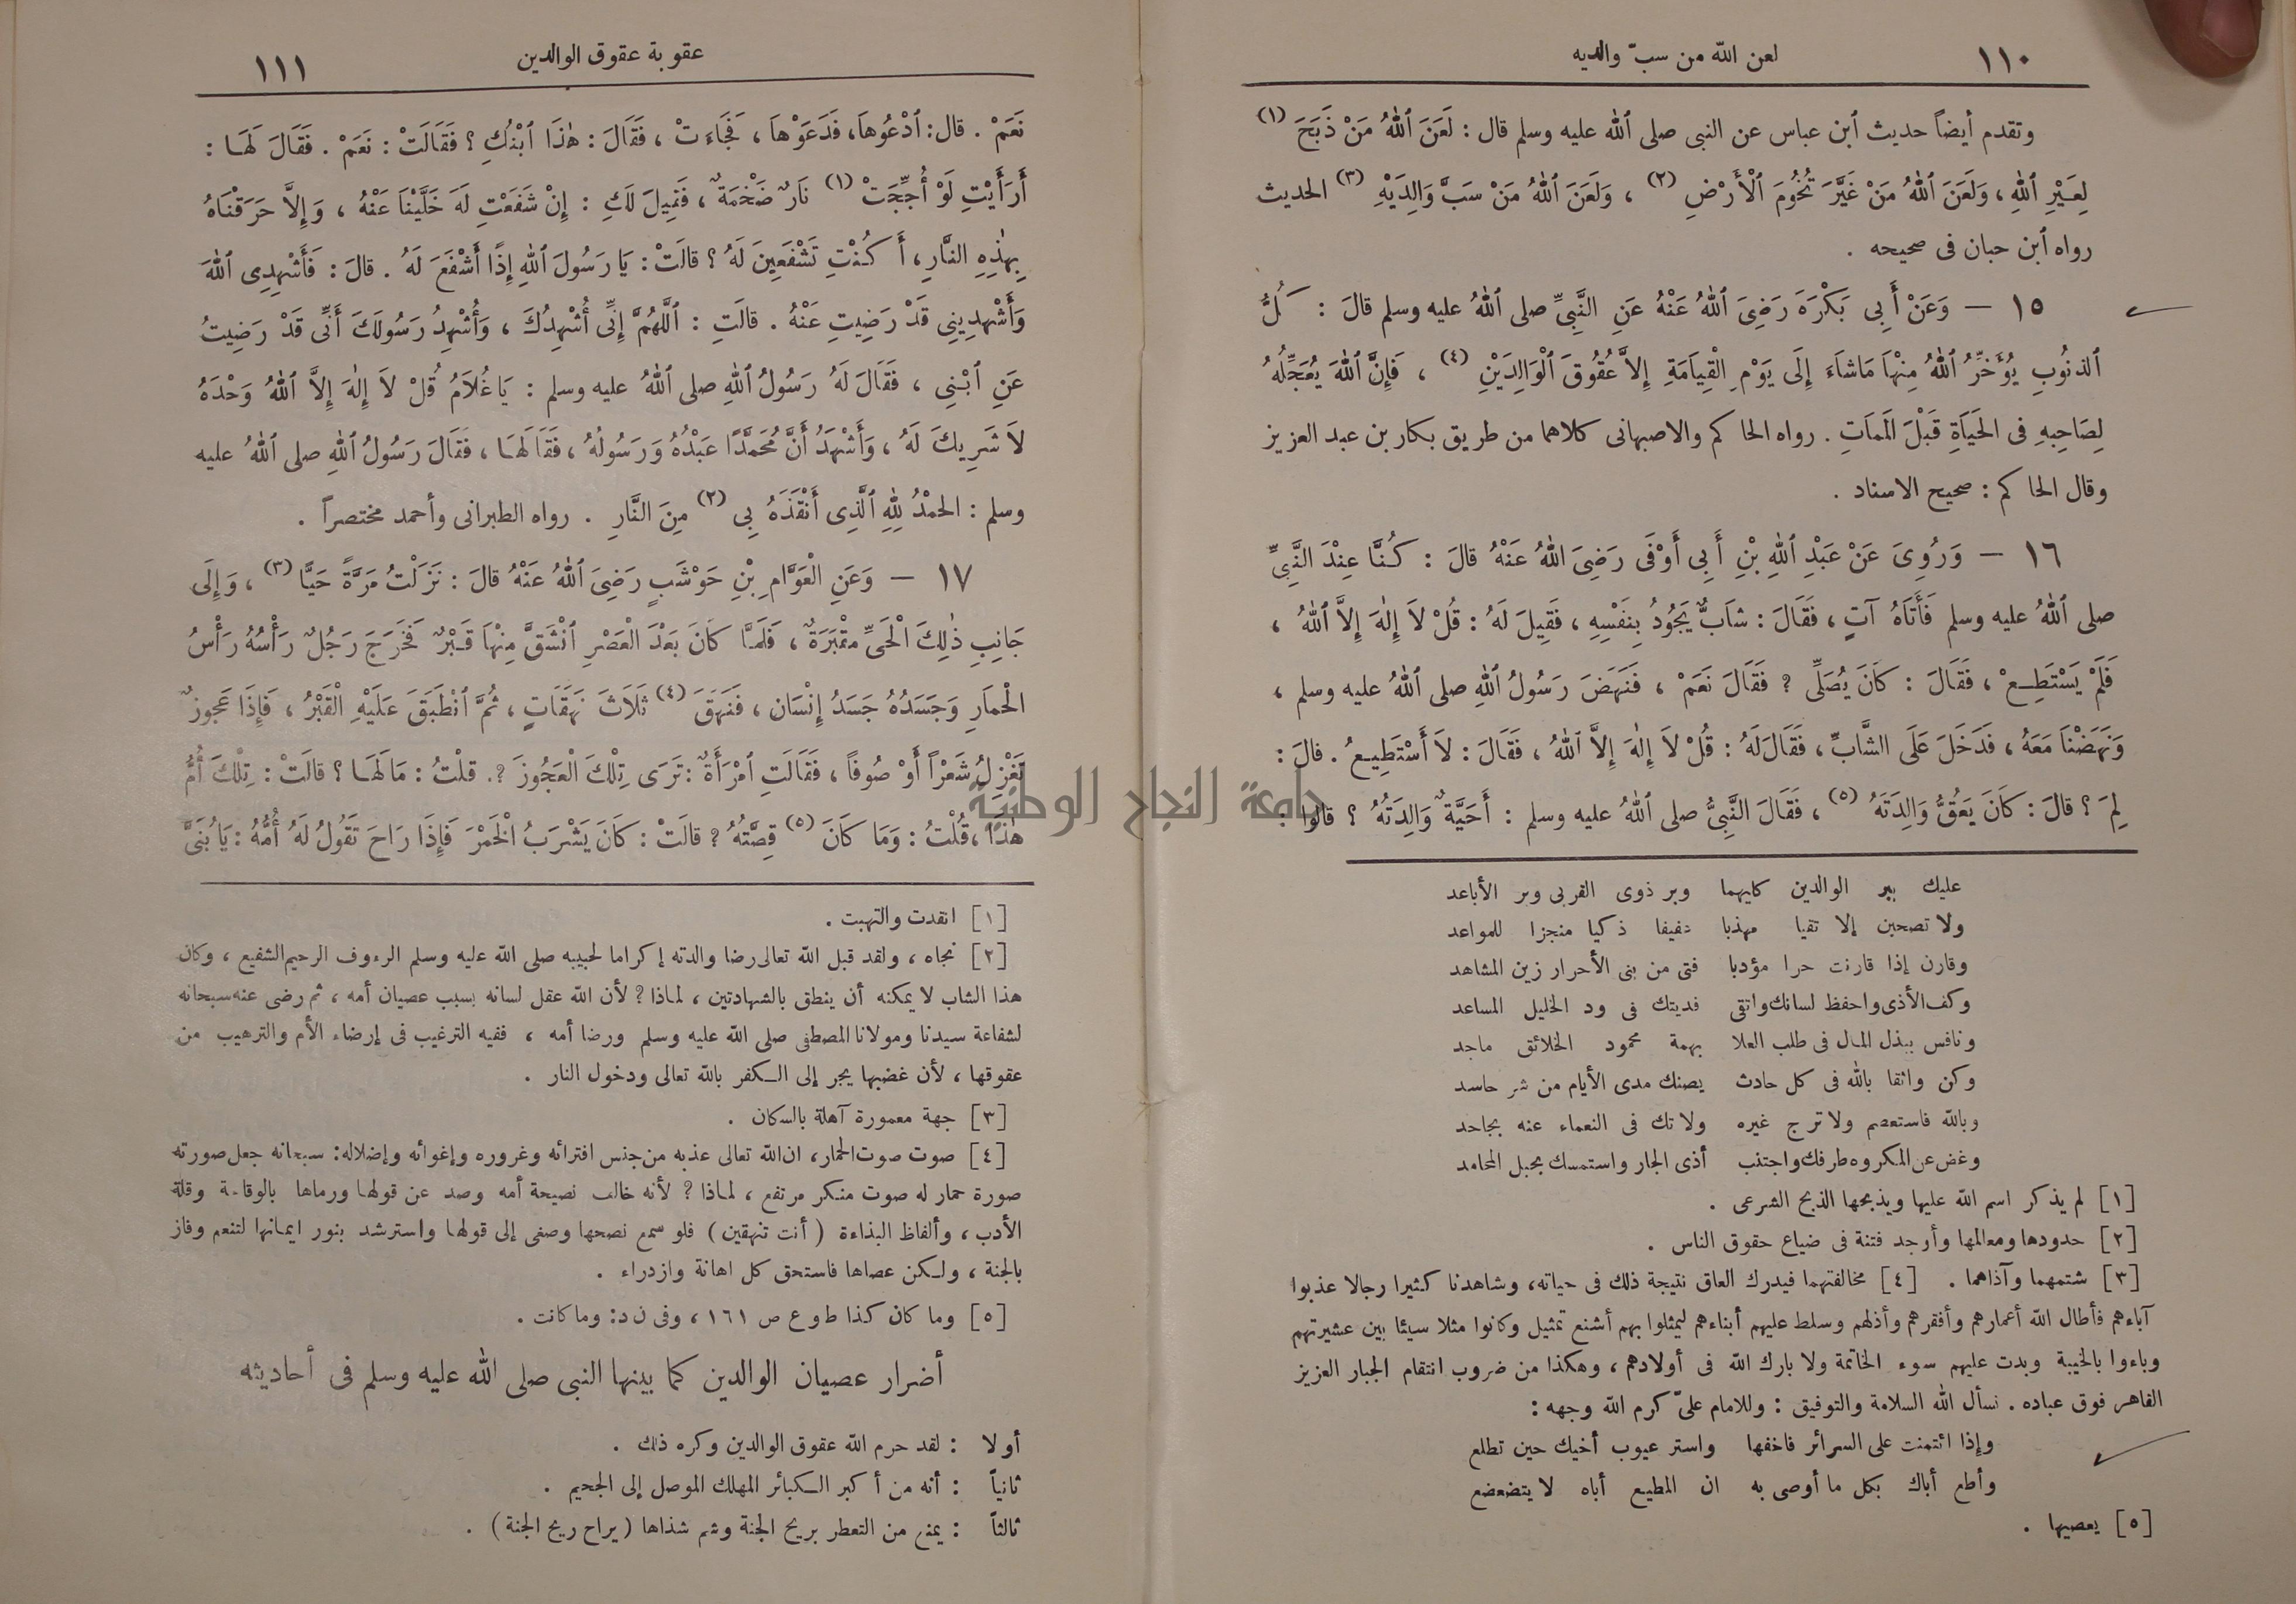 ١١٠
لعن الله من سبّ والديه
وتقدم أيضاً حديث ٱبن عباس عن النبى صلى ٱلله عليه وسلم قال : لَعَنَ ٱللهُ مَنْ ذَبَحَ (١)
لِغَيْرِ ٱللهِ ، وَلَعَنَ ٱللهُ مَنْ غَيَّرَ تُخُومَ ٱلْأَرْضِ (٢) ، وَلَعَنَ ٱللهُ مَنْ سَبَّ وَالِدَيْهِ (٣) الحديث
رواه ٱبن حبان فى صحيحه .
١٥ — وَعَنْ أَبِى بَكْرَةَ رَضِىَ ٱللهُ عَنْهُ عَنِ النَّبِىِّ صلى ٱللهُ عليه وسلم قالَ : كُلُّ
ٱلذنُوبِ يُؤَخِّرُ ٱللهُ مِنْهَا مَاشَاءَ إِلَى يَوْمِ الْقِيَامَةِ إِلاَّ عُقُوقَ ٱلْوَالِدَيْنِ (٤) ، فَإِنَّ ٱللهَ يُعَجِّلُهُ
لِصَاحِبِهِ فى الحَيَاةِ قَبْلَ المَمَاتِ . رواه الحاكم والاصبهانى كلاهما من طريق بكار بن عبد العزيز
وقال الحاكم : صحيح الاسناد .
١٦ — وَرُوِىَ عَنْ عَبْدِ ٱللهِ بْنِ أَبِى أَوْفَى رَضِىَ اللهُ عَنْهُ قالَ : كُنَّا عِنْدَ النَّبِىِّ
صلى ٱللهُ عليه وسلم فَأَتَاهُ آتٍ ، فَقَالَ : شَابٌّ يَجُودُ بِنَفْسِهِ ، فَقِيلَ لَهُ : قُلْ لاَ إِلٰهَ إِلاَّ ٱللهُ ،
فَلَمْ يَسْتَطِعْ ، فَقَالَ : كَانَ يُصَلِّى ؟ فَقَالَ نَعَمْ ، فَنَهَضَ رَسُولُ ٱللهِ صلى ٱللهُ عليه وسلم ،
وَنَهَضْنَا مَعَهُ ، فَدَخَلَ عَلَى الشَّابِّ ، فَقَالَ لَهُ : قُلْ لاَ إِلٰهَ إِلاَّ ٱللهُ ، فَقَالَ : لاَ أَسْتَطِيعُ . قالَ :
لِمَ ؟ قالَ : كَانَ يَعُقُّ وَالِدَتَهُ (٥) ، فَقَالَ النَّبِىُّ صلى ٱللهُ عليه وسلم : أَحَيَّةٌ وَالِدَتُهُ ؟ قالوا :
عليك ببر الوالدين كليهما وبر ذوى القربى وبر الأباعد
ولا تصحبن إلا تقيا مهذبا عفيفا ذكيا منجزا للمواعد
وقارن إذا قارنت حرا مؤدبا فتى من بنى الأحرار زين المشاهد
وكف الأذى واحفظ لسانك واتقى فديتك فى ود الخليل المساعد
ونافس ببذل المال فى طلب العلا بهمة محمود الخلائق ماجد
وكن واثقا بالله فى كل حادث يصنك مدى الأيام من شر حاسد
وبالله فاستعصم ولا ترج غيره ولا تك فى النعماء عنه بجاحد
وغض عن المكروه طرفك واجتنب أذى الجار واستمسك بحبل المحامد
[١] لم يذكر اسم الله عليها ويذبحها الذبح الشرعى .
[٢] حدودها ومعالمها وأوجد فتنة فى ضياع حقوق الناس .
[٣] شتمهما وآذاهما . [٤] مخالفتهما فيدرك العاق نتيجة ذلك فى حياته، وشاهدنا كثيرا رجالا عذبوا
آباءهم فأطال الله أعمارهم وأفقرهم وأذلهم وسلط عليهم أبناءهم ليمثلوا بهم أشنع تمثيل وكانوا مثلا سيئا بين عشيرتهم
وباءوا بالخيبة وبدت عليهم سوء الخاتمة ولا بارك الله فى أولادهم ، وهكذا من ضروب انتقام الجبار العزيز
القاهر فوق عباده . نسأل الله السلامة والتوفيق : وللامام علىّ كرم الله وجهه :
وإذا ائتمنت على السرائر فاخفها واستر عيوب أخيك حين تطلع
وأطع أباك بكل ما أوصى به ان المطيع أباه لا يتضعضع
[٥] يعصيها .
عقوبة عقوق الوالدين
١١١
نَعَمْ . قال : ٱدْعُوهاَ ، فَدَعَوْهاَ ، فَجَاءَتْ ، فَقَالَ : هٰذَا ٱبْنُكِ ؟ فَقَالَتْ : نَعَمْ . فَقَالَ لَهَا :
أَرَأَيْتِ لَوْ أُجِّجَتْ (١) نَارٌ ضَخْمَةٌ ، فَقِيلَ لَكِ : إِنْ شَفَعْتِ لَهُ خَلَّيْنَا عَنْهُ ، وَإِلاَّ حَرَقْنَاهُ
بِهٰذِهِ النَّارِ ، أَكُنْتِ تَشْفَعِينَ لَهُ ؟ قالَتْ : يَا رَسُولَ ٱللهِ إِذًا أَشْفَعَ لَهُ . قالَ : فَأَشْهِدِى ٱللهَ
وَأَشْهِدِينِى قَدْ رَضِيتِ عَنْهُ . قالَتِ : ٱللَّهُمَّ إِنِّى أُشْهِدُكَ ، وَأُشْهِدُ رَسُولَكَ أَنِّى قَدْ رَضِيتُ
عَنِ ٱبْنِى ، فَقَالَ لَهُ رَسُولُ ٱللهِ صلى ٱللهُ عليه وسلم : يَا غُلاَمُ قُلْ لاَ إِلٰهَ إِلاَّ ٱللهُ وَحْدَهُ
لاَ شَرِيكَ لَهُ ، وَأَشْهَدُ أَنَّ مُحَمَّدًا عَبْدُهُ وَرَسُولُهُ ، فَقَالَهَا ، فَقَالَ رَسُولُ ٱللهِ صلى ٱللهُ عليه
وسلم : الحمْدُ لِلهِ ٱلَّذِى أَنْقَذَهُ بِى (٢) مِنَ النَّارِ . رواه الطبرانى وأحمد مختصراً .
١٧ — وَعَنِ الْعَوَّامِ بْنِ حَوْشَبٍ رَضِىَ ٱللهُ عَنْهُ قالَ : نَزَلْتُ مَرَّةً حَيًّا (٣) ، وَإِلَى
جَانِبِ ذٰلِكَ الْحَىِّ مَقْبَرَةٌ ، فَلَمَّا كَانَ بَعْدَ الْعَصْرِ ٱنْشَقَّ مِنْهَا قَبْرٌ فَخَرَجَ رَجُلٌ رَأْسُهُ رَأْسُ
الْحمَارِ وَجَسَدُهُ جَسَدُ إِنْسَانٍ ، فَنَهَقَ (٤) ثَلاَثَ نَهَقَاتٍ ، ثُمَّ ٱنْطَبَقَ عَلَيْهِ الْقَبْرُ ، فَإِذَا عَجوزٌ
تَغْزِلُ شَعْراً أَوْ صُوفًا ، فَقَالَتِ ٱمْرَأَةٌ : تَرَى تِلْكَ الْعَجُوزَ ؟. قلْتُ : مَا لَهَا ؟ قالَتْ : تِلْكَ أُمُّ
هٰذَا ، قُلْتُ : وَمَا كَانَ (٥) قِصَّتُهُ ؟ قالَتْ : كَانَ يَشْرَبُ الْخَمْرَ فَإِذَا رَاحَ تَقُولُ لَهُ أُمُّهُ : يَا بُنَىَّ
جامعة النجاح الوطنية
[١] اتقدت والتهبت .
[٢] نجاه ، ولقد قبل الله تعالى رضا والدته إكراما لحبيبه صلى الله عليه وسلم الرءوف الرحيم الشفيع ، وكان
هذا الشاب لا يمكنه أن ينطق بالشهادتين ، لماذا ؟ لأن الله عقل لسانه بسبب عصيان أمه ، ثم رضى عنه سبحانه
لشفاعة سيدنا ومولانا المصطفى صلى الله عليه وسلم ورضا أمه ، ففيه الترغيب فى إرضاء الأم والترهيب من
عقوقها ، لأن غضبها يجر إلى الكفر بالله تعالى ودخول النار .
[٣] جهة معمورة آهلة بالسكان .
[٤] صوت صوت الحمار، ان الله تعالى عذبه من جنس افترائه وغروره وإغوائه وإضلاله: سبحانه جعل صورته
صورة حمار له صوت منكر مرتفع ، لماذا ؟ لأنه خالف نصيحة أمه وصد عن قولها ورماها بالوقاحة وقلة
الأدب ، وألفاظ البذاءة ( أنت تنهقين ) فلو سمع نصحها وصغى إلى قولها واسترشد بنور ايمانها لتنعم وفاز
بالجنة ، ولكن عصاها فاستحق كل اهانة وازدراء .
[٥] وما كان كذا ط وع ص ١٦١ ، وفى ن د: وما كانت .
أضرار عصيان الوالدين كما بينها النبى صلى الله عليه وسلم فى أحاديثه
أولا : لقد حرم الله عقوق الوالدين وكره ذلك .
ثانياً : أنه من أكبر الكبائر المهلك الموصل إلى الجحيم .
ثالثاً : يمنع من التعطر بريح الجنة وشم شذاها ( يراح ريح الجنة ) .